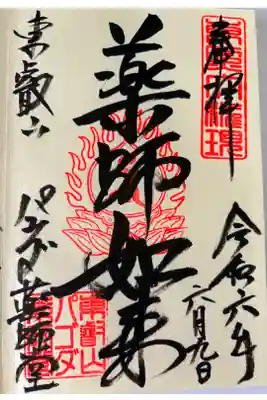 奉拝
令和六年
六月九日
薬師如来
東叡山
パゴダ薬師堂
東叡山
パゴダ